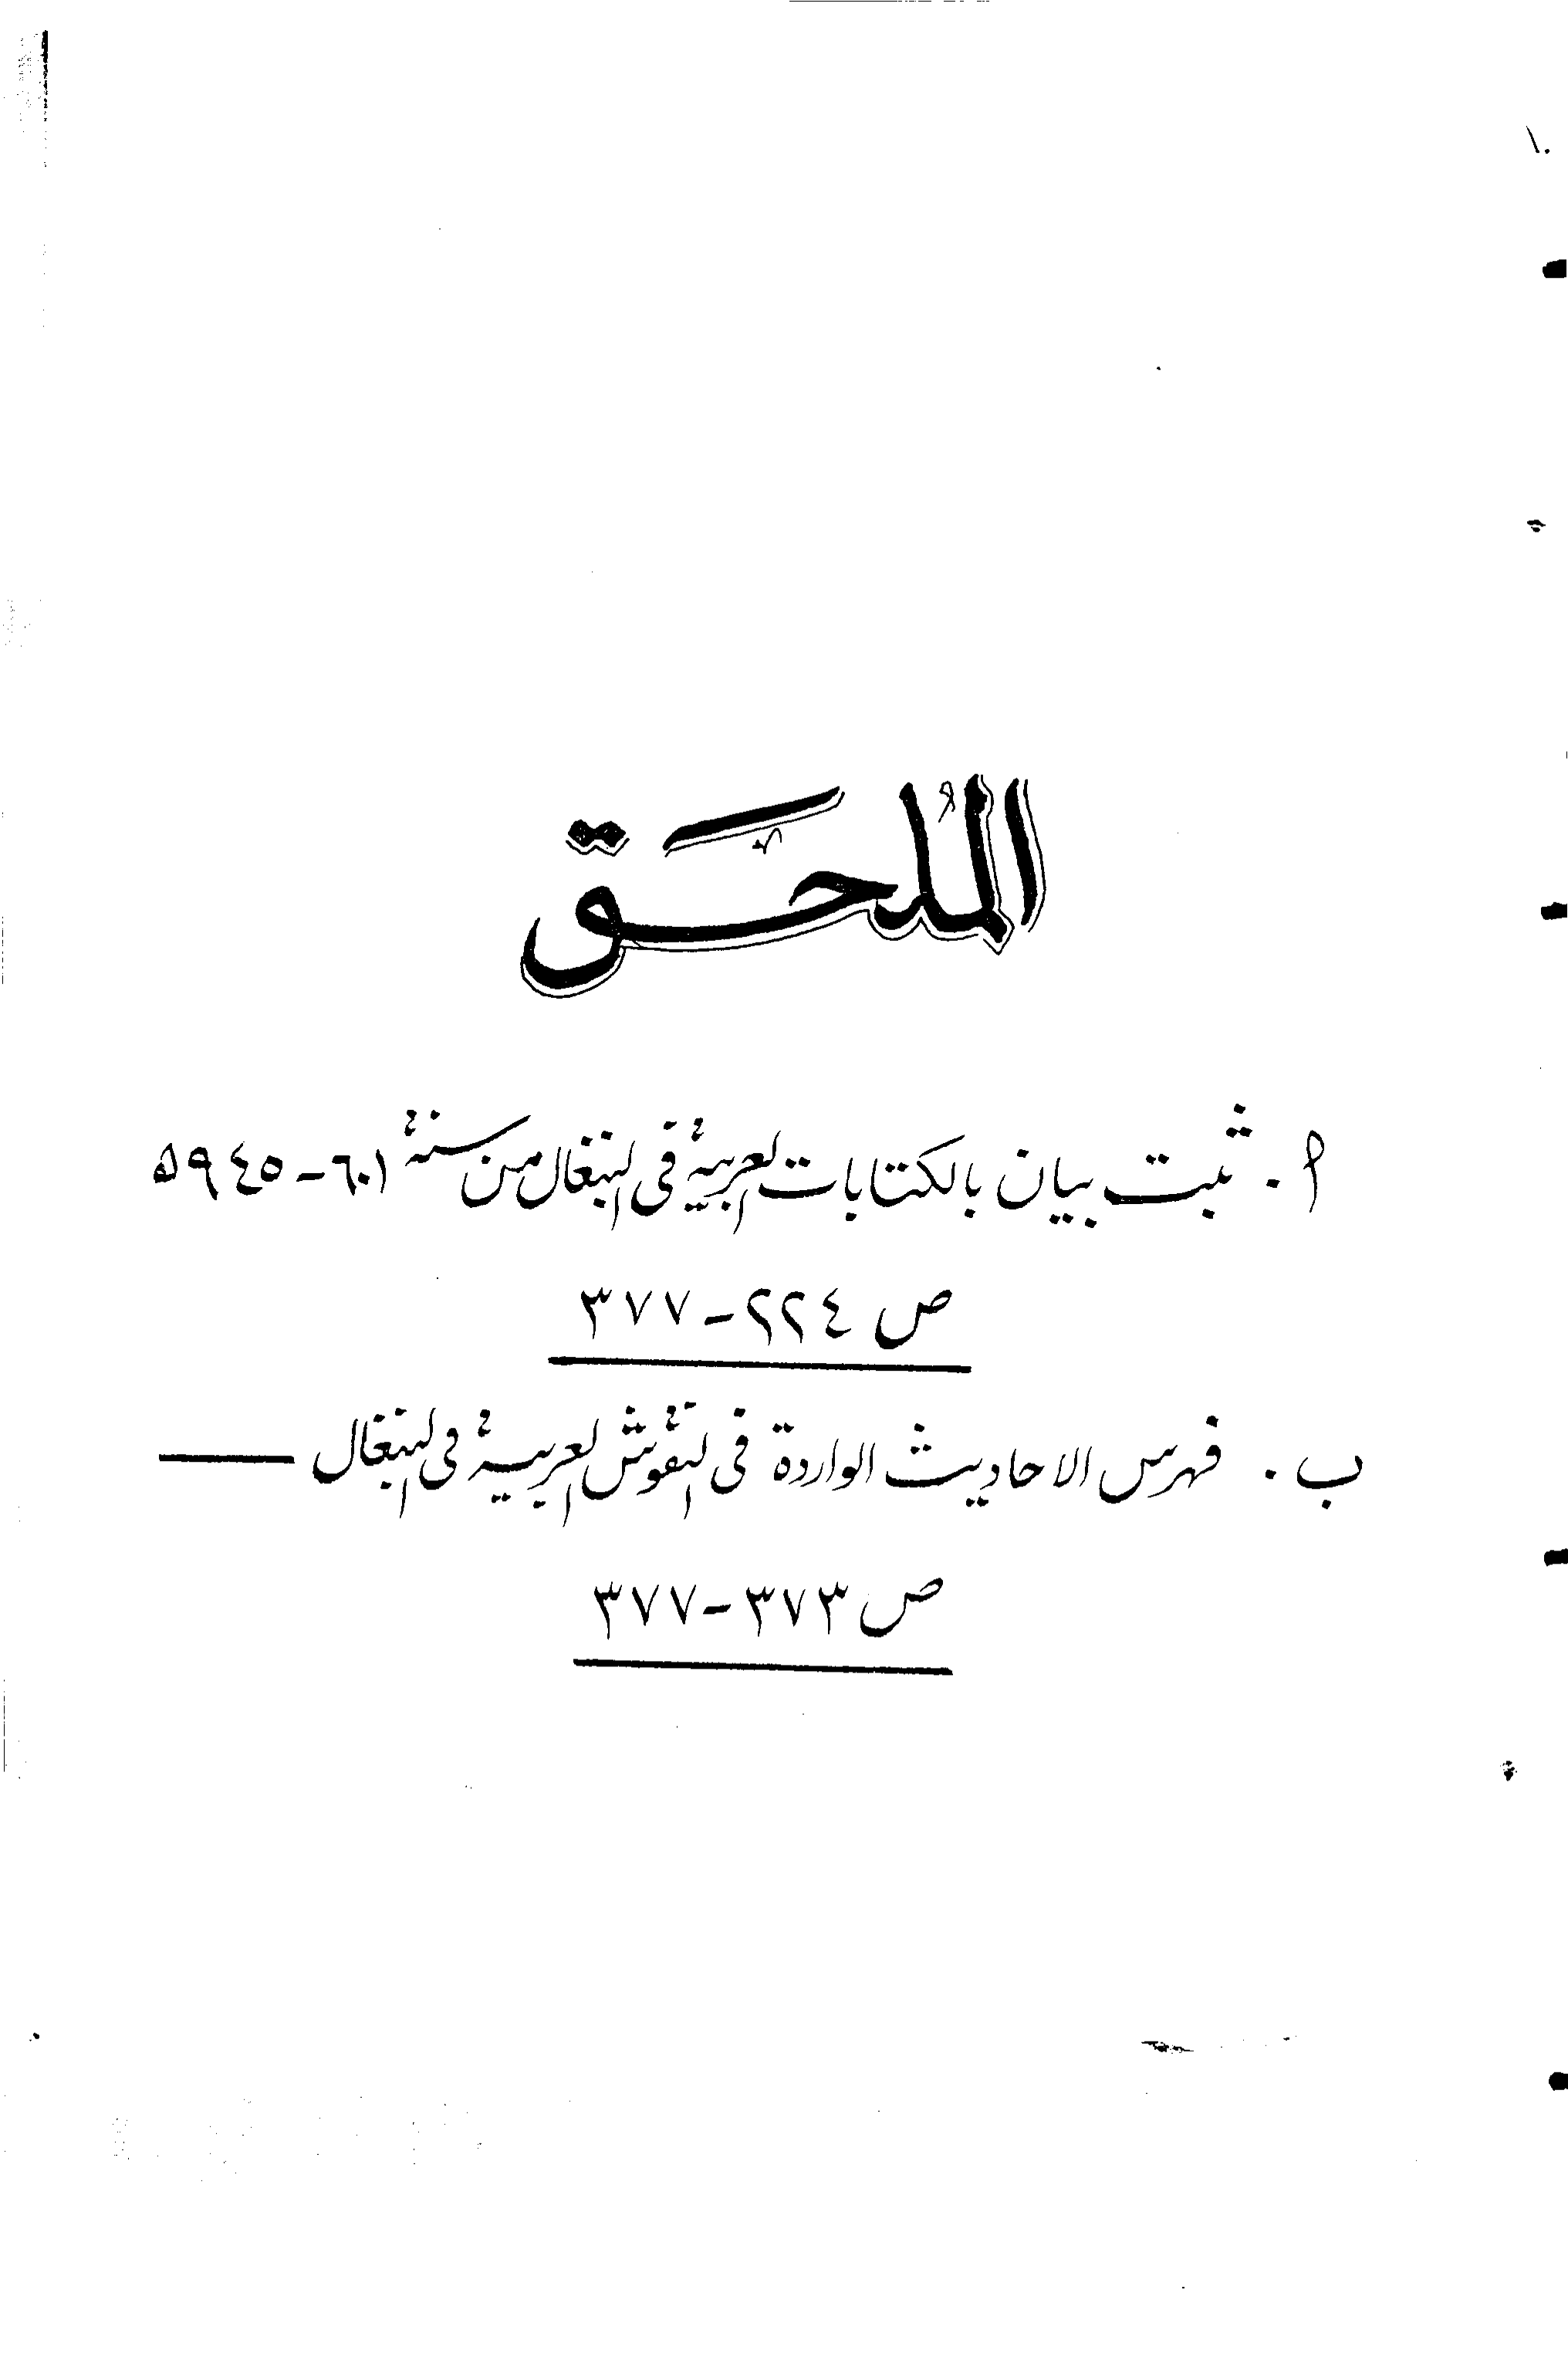 المُلحَق
أ . ثبت بيان بالكتابات العربية في البنغال من سنة ٦٠١-٩٤٥ه
ص ٢٢٤-٣٧٧
ب . فهرس الاحاديث الواردة في النقوش العربية في البنغال ——
ص ٣٧٣-٣٧٧